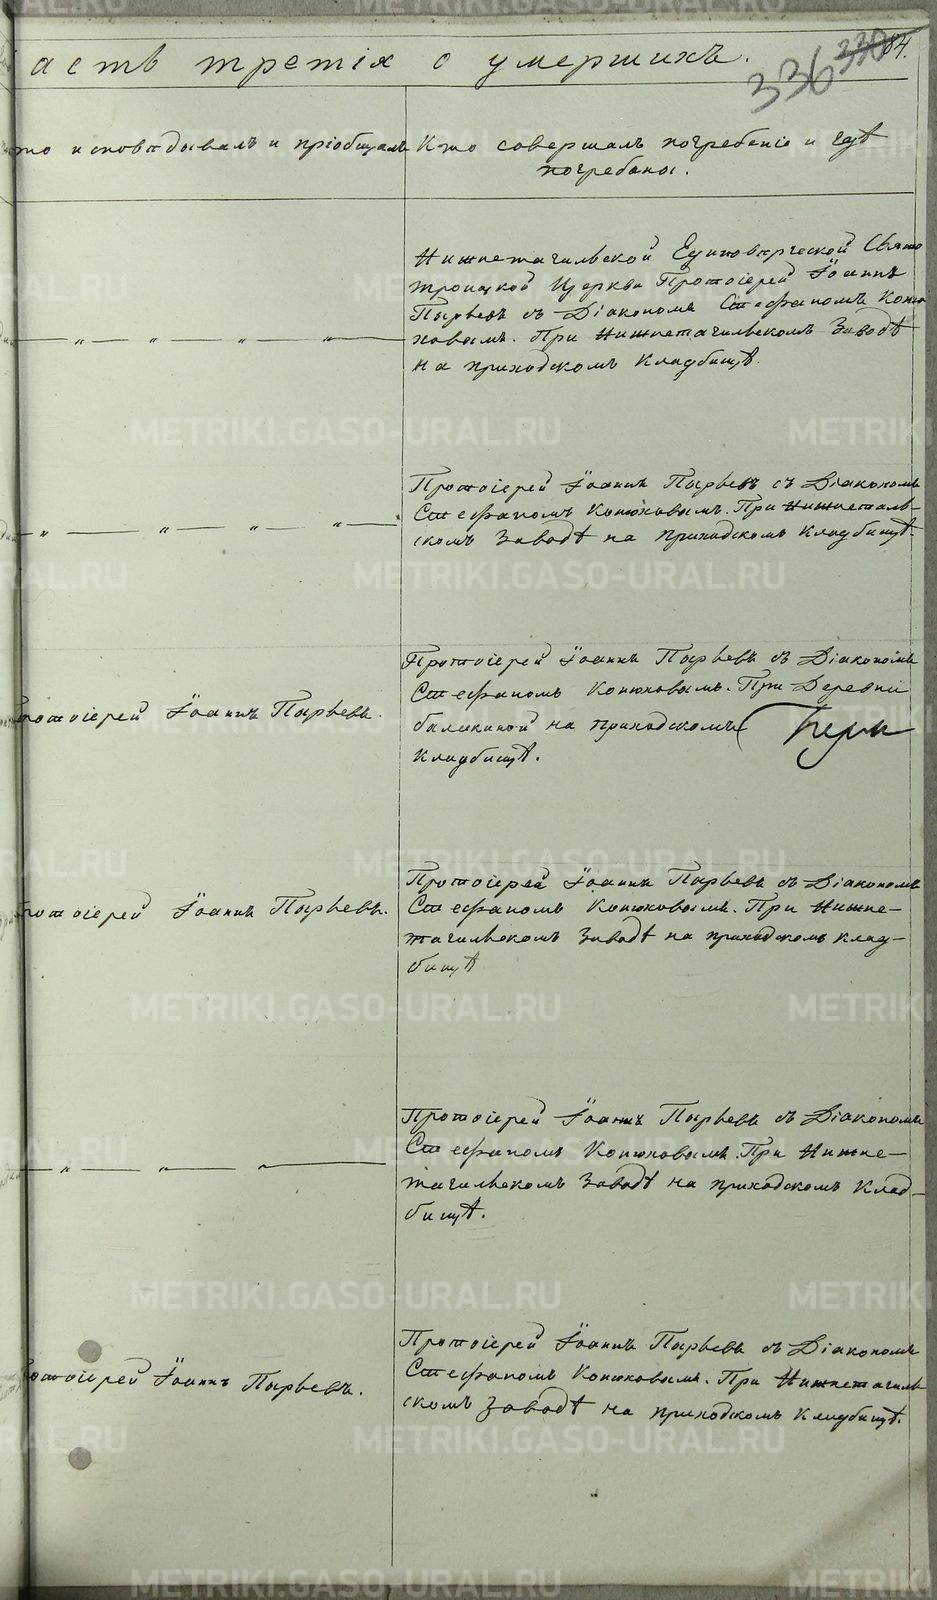 асть третія о умершихъ.
336 330 84.
то исповѣдывалъ и пріобщалъ
Кто совершалъ погребеніе и гдѣ
погребены.
Нижнетагильской Единовѣрческой Свято
троицкой Церкви Протоіерей Іоаннъ
Пырьевъ съ Діакономъ Стефаномъ Коню
ховымъ. При Нижнетагильскомъ Заводѣ
на приходскомъ Кладбищѣ.
Протоіерей Іоаннъ Пырьевъ съ Діакономъ
Стефаномъ Конюховымъ. При Нижнетагиль-
скомъ Заводѣ на Приходскомъ Кладбищѣ.
ротоіерей Іоаннъ Пырьевъ.
Протоіерей Іоаннъ Пырьевъ съ Діакономъ
Стефаномъ Конюховымъ. При Деревни
на приходскомъ
Кладбищѣ.
ротоіерей Іоаннъ Пырьевъ.
Протоіерей Іоаннъ Пырьевъ съ Діакономъ
Стефаномъ Конюховымъ. При Нижне-
тагильскомъ Заводѣ на приходскомъ клад-
бищѣ
Протоіерей Іоаннъ Пырьевъ съ Діакономъ
Стефаномъ Конюховымъ. При Нижне-
тагильскомъ Заводѣ на приходскомъ Клад-
бищѣ.
отоіерей Іоаннъ Пырьевъ.
Протоіерей Іоаннъ Пырьевъ съ Діакономъ
Стефаномъ Конюховымъ. При Нижнетагиль
скомъ Заводѣ на приходскомъ Кладбищѣ.
METRIKI.GASO-URAL.RU